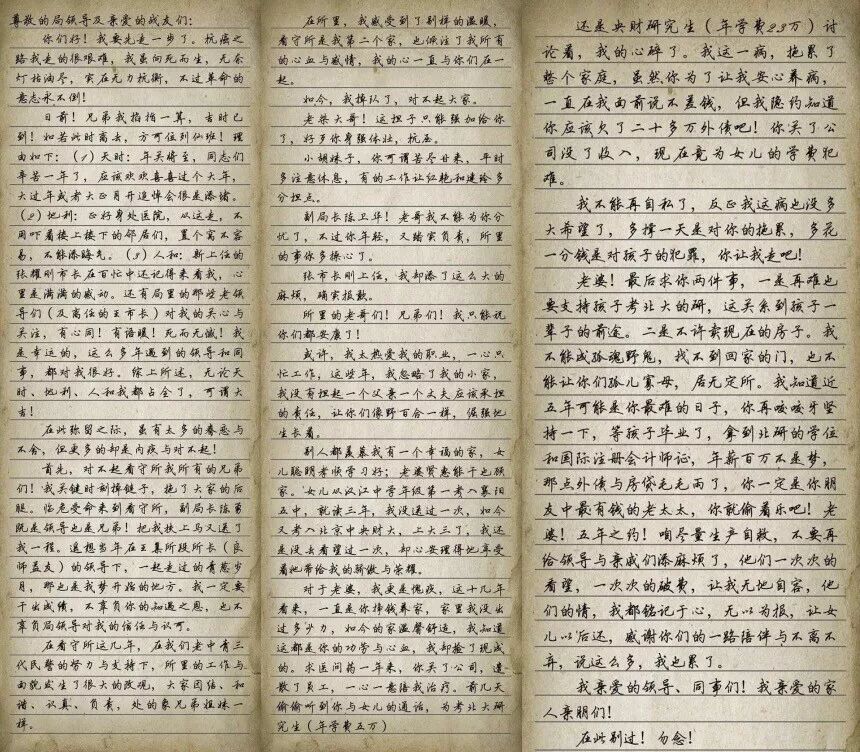 尊敬的局领导及亲爱的战友们：
你们好！我要先走一步了。抗癌之
路我走的很艰难，我虽向死而生，无奈
灯枯油尽，实在无力抗衡，不过革命的
意志永不倒！
日前！兄弟我掐指一算，吉时已
到！如若此时离去，方可位列仙班！理
由如下：（1）天时：年关将至，同志们
辛苦一年了，应该欢欢喜喜过个大年，
大过年或者大正月开追悼会很是添堵。
（2）地利：正好身处医院，从这走，不
用吓着楼上楼下的邻居们，置个窝不容
易，不能添晦气。（3）人和：新上任的
张耀刚市长在百忙中还记得来看我，心
里是满满的感动。还有局里的那些老领
导们（及离任的王市长）对我的关心与
关注，有心同！有语暖！死而无憾！我
是幸运的，这么多年遇到的领导和同
事，都对我很好。综上所述，无论天
时、地利、人和我都占全了，可谓大
吉！
在此弥留之际，虽有太多的眷恋与
不舍，但更多的却是内疚与对不起。
首先，对不起看守所我所有的兄弟
们！我关键时刻掉链子，拖了大家的后
腿。临危受命来到看守所，副局长陈勇
既是领导也是兄弟！把我扶上马又送了
我一程。遥想当年在王集阶段所长（良
师益友）的领导下，一起走过的青葱岁
月，那也是我梦开始的地方。我一定要
干出成绩，不辜负你的知遇之恩，也不
辜负局领导对我的信任与认可。
在看守所这几年，在我们老中青三
代民警的努力与支持下，所里的工作与
面貌发生了很大的改观，大家团结、和
谐、认真、负责，处的象兄弟姐妹一
样。
在所里，我感受到了别样的温暖，
看守所是我第二个家，也倾注了我所有
的心血与感情，我的心一直与你们在一
起。
如今，我掉队了，对不起大家。
老梁大哥！这担子只能强加给你
了，好歹你身强体壮，抗压。
小胡妹子，你可谓苦尽甘来，平时
多注意休息，有的工作让红艳和建玲多
分担点。
副局长陈卫华！老哥我不能为你分
忧了，不过你年轻，又踏实负责，所里
的事你多操心了。
张市长刚上任，我却添了这么大的
麻烦，确实抱歉。
所里的老哥们！兄弟们！我只能祝
你们都安康了！
或许，我太热爱我的职业，一心只
忙工作，这些年，我忽略了我的小家，
我没有担起一个父亲一个丈夫应该承担
的责任，让你们像野百合一样，倔强地
生长着。
别人都羡慕我有一个幸福的家，女
儿聪明孝顺学习好；老婆贤惠能干也顾
家。女儿从汉江中学年级第一考入襄阳
五中，就读三年，我没送过一次，如今
又考入北京中央财大，上大三了，我还
是没去看望过一次，却心安理得地享受
着她带给我的骄傲与荣耀。
对于老婆，我更是愧疚，这十几年
看来，一直是你挣钱养家，家里我没出
过多少力，如今的家温馨舒适，我知道
这都是你的功劳与心血，我却捡了现成
的。求医问药一年来，你关了公司，遣
散了员工，一心一意陪我治疗。前几天
偷偷听到你与女儿的通话，为考北大研
究生（年学费五万）
还是央财研究生（年学费23万）讨
论着，我的心碎了。我这一病，拖累了
整个家庭，虽然你为了让我安心养病，
一直在我面前说不差钱，但我隐约知道
你应该欠了二十多万外债吧！你关了公
司没了收入，现在竟为女儿的学费犯
难。
我不能再自私了，反正我这病也没多
大希望了，多撑一天是对你的拖累，多花
一分钱是对孩子的犯罪，你让我走吧！
老婆！最后求你两件事，一是再难也
要支持孩子考北大的研，这关系到孩子一
辈子的前途。二是不许卖现在的房子。我
不能成孤魂野鬼，找不到回家的门，也不
能让你们孤儿寡母，居无定所。我知道近
五年可能是你最难的日子，你再咬咬牙坚
持一下，等孩子毕业了，拿到北研的学位
和国际注册会计师证，年薪百万不是梦，
那点外债与房贷毛毛雨了，你一定是你朋
友中最有钱的老太太，你就偷着乐吧！老
婆！五年之约！咱尽量生产自救，不要再
给领导与亲戚们添麻烦了，他们一次次的
看望，一次次的破费，让我无地自容，他
们的情，我都铭记于心，无以为报，让女
儿以后还，感谢你们的一路陪伴与不离不
弃，说这么多，我也累了。
我亲爱的领导、同事们！我亲爱的家
人亲朋们！
在此别过！勿念！